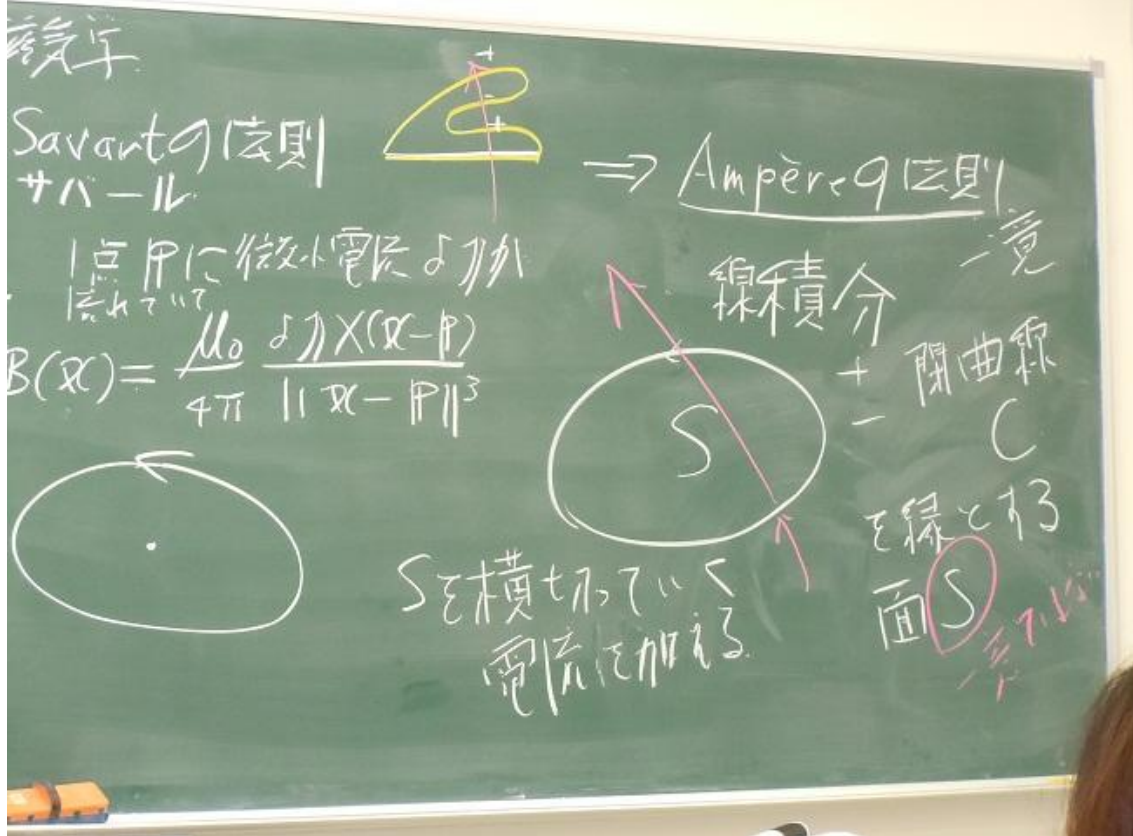 磁気学
Savartの法則
サバール
1点Pに微小電流δJが
流れていて
B(x) = μ0/4π δJ×(x−P)/||x−P||³
+
-
+
⇒ Ampèreの法則
線積分
境
+
-
閉曲線
C
を縁とする
面S
S
Sを横切っていく
電流を加える